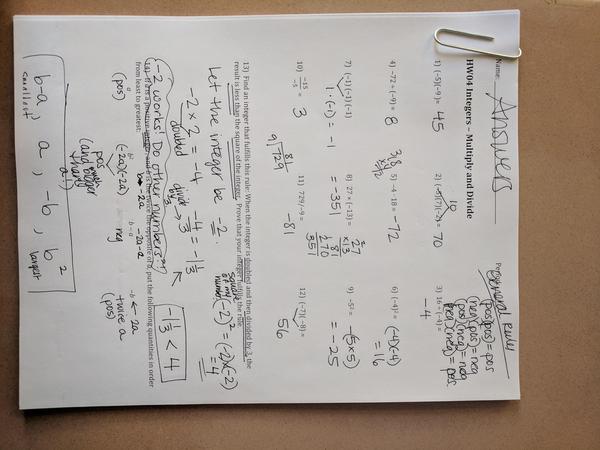 Name: Answers
HW04 Integers – Multiply and Divide
general rules
(pos)(pos) = pos
(neg)(pos) = neg
(pos)(neg) = neg
(neg)(neg) = pos.
1) (-5)(-9)= 45
2) (-5)(7)(-2)= 70
10
3) 16 ÷ (-4) =
-4
4) -72 ÷ (-9) = 8
5) -4 · 18 = -72
6) (-4)² = (-4)(-4)
= 16
7) (-1)(-1)(-1)
1 · (-1) = -1
8) 27 × (-13) =
= -351
27
×13
81
270
351
9) -5² = -(5×5)
= -25
10) -15/-5 = 3
11) 729/-9 =
-81
81
9 729
12) (-7)(-8) =
56
13) Find an integer that fulfills this rule: When the integer is doubled and then divided by 3, the
result is less than the square of the integer. Prove that your integer fulfills the rule
Let the integer be -2.
-2 × 2 = -4
doubled
-4/3 = -1 1/3
divide by 3
square of my number
(-2)² = (-2)(-2)
= 4
-1 1/3 < 4
(-2 works! Do other numbers?)
14) If a is a positive integer, and b is the twice the opposite of a, put the following quantities in order
from least to greatest:
a
(pos)
b²
(-2a)(-2a)
pos
(and bigger
than a)
b – a
-2a - a
neg
-b
twice a
(pos)
b = -2a
b-a, a, -b, b²
smallest
largest